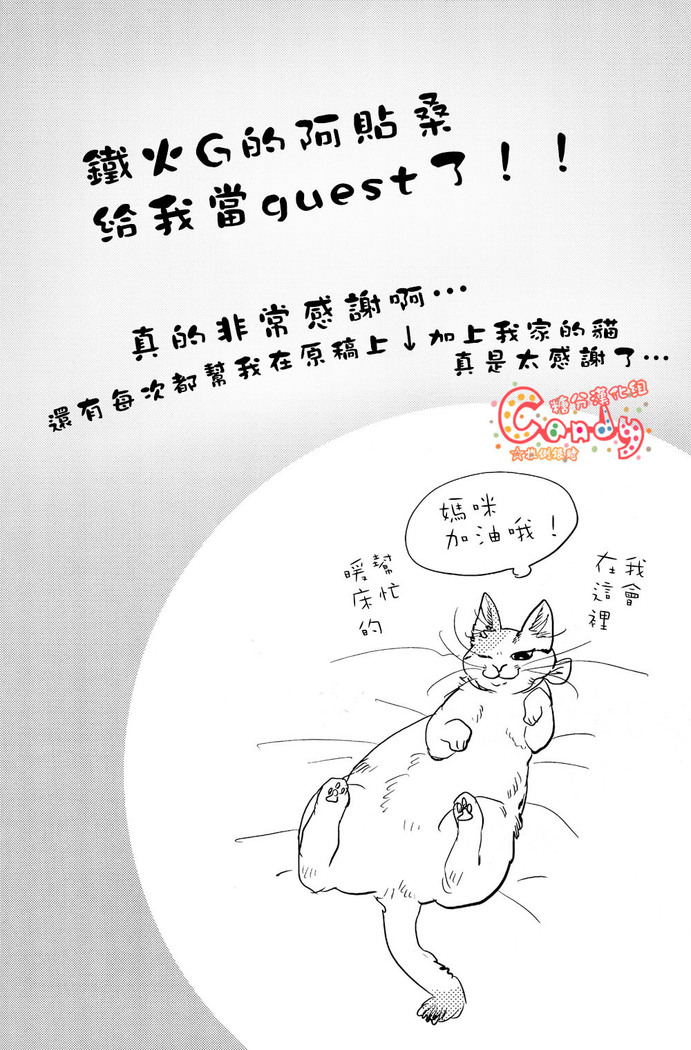 鐵火G的阿貼桑
給我當guest了！！
真的非常感謝啊…
還有每次都幫我在原稿上↓加上我家的貓
真是太感謝了…
糖分漢化組
Candy
媽咪
加油哦！
我會
在這裡
幫忙
暖床的